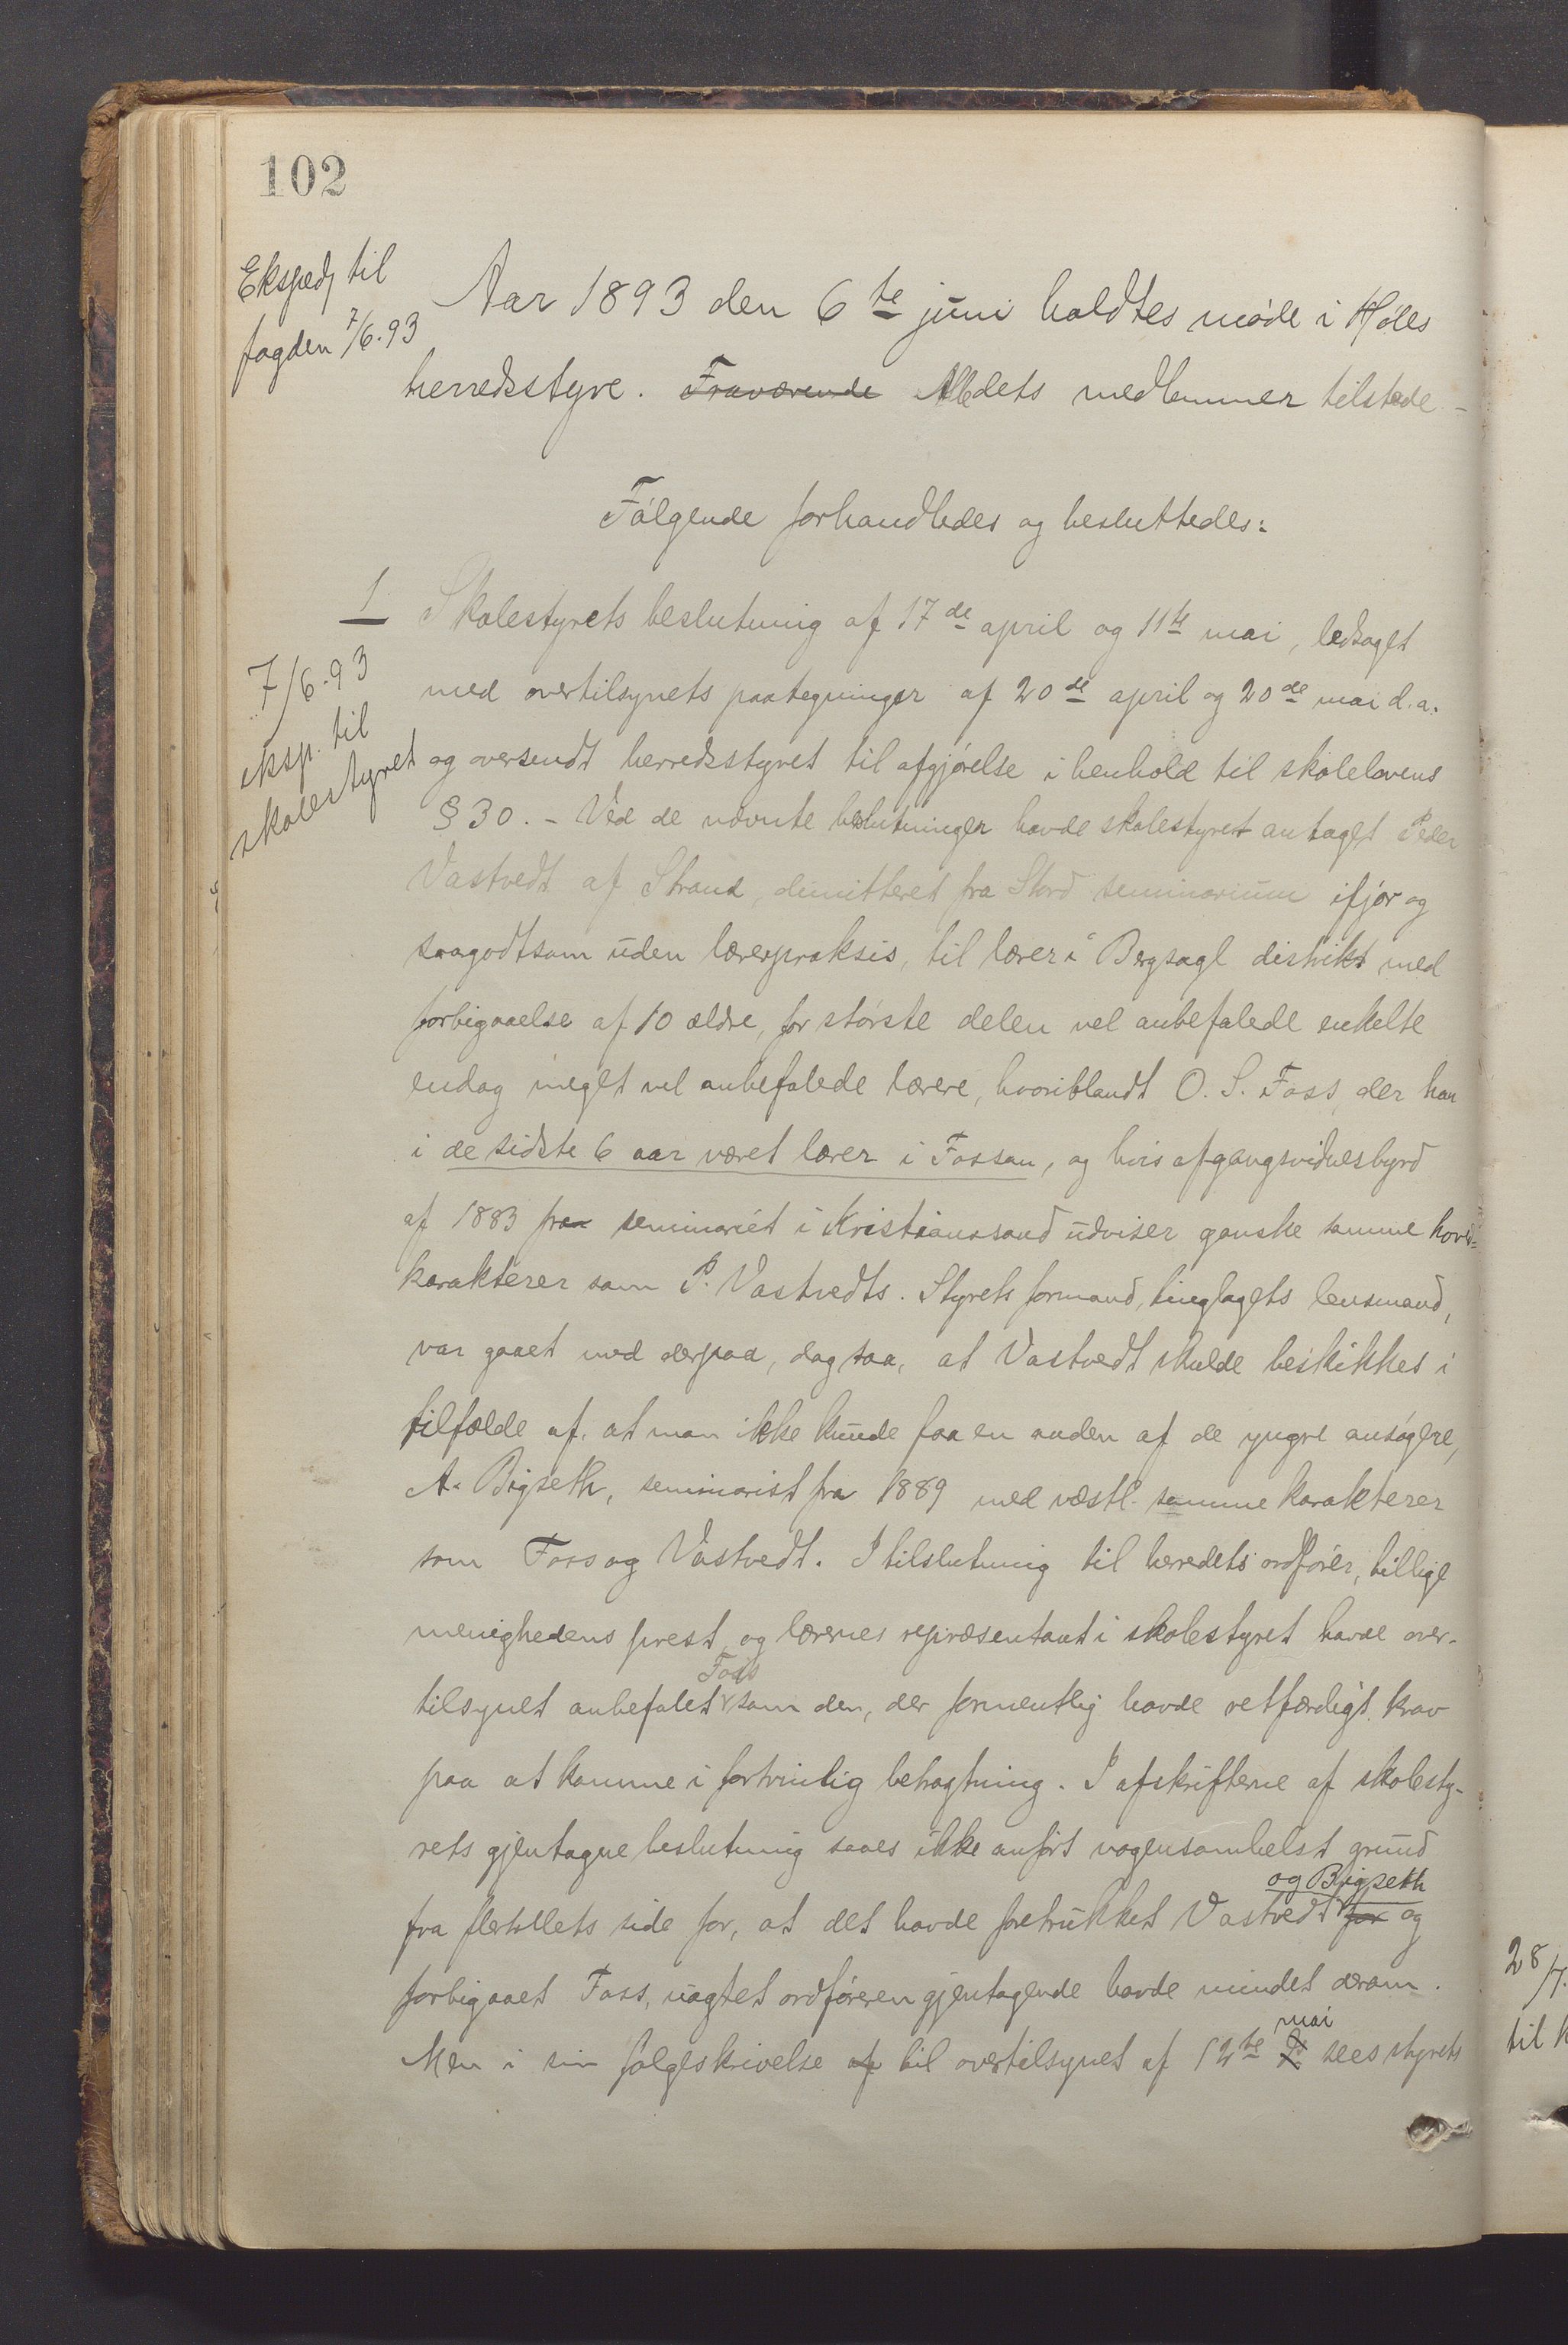 102
Eksped, til
fogden 7/6.93
Aar 1893 den 6te juni holdtes møde i Høles
herredsstyre. Fraværende Alle dets medlemmer tilstede –
Følgende forhandledes og besluttedes:
1
Skolestyrets beslutning af 17de april og 11te mai, ledsaget
7/6.93
eksp. til
skolestyret
med overtilsynets paategninger af 20de april og 20de mai d.a.
og oversendt herredsstyret til afgjørelse i henhold til skolelovens
§ 30. – Ved de nævnte beslutninger havde skolestyret antaget Peder
Vastvedt af Strand, dimitteret fra Stord seminarium ifjor og
saagodtsom uden lærerpraksis, til lærer i Bergsagl distrikt med
forbigaaelse af 10 ældre, for største delen vel anbefalede enkelte
endog meget vel anbefalede lærere, hvoriblandt O. S. Foss, der har
i de sidste 6 aar været lærer i Fossan, og hvis afgangsvidnesbyrd
af 1883 fra seminariet i Kristianssand udviser ganske samme hoved=
karakterer som P. Vastvedts. Styrets formand, tinglagets lensmand,
var gaaet med derpaa, dog saa, at Vastvedt skulde beskikkes i
tilfælde af, at man ikke kunde faa en anden af de yngre ansøgere,
A. Bigseth, seminarist fra 1889 med væstl. samme karakterer
som Foss og Vastvedt. I tilslutning til herredets ordfører, tillige
menighedens prest, og lærernes repræsentant i skolestyret havde over-
Foss
tilsynet anbefalet som den, der formentlig havde retfærdigt krav
paa at komme i fortrinlig betragtning. I afskrifterne af skolesty-
rets gjentagne beslutning saaes ikke anført nogensomhelst grund
og Bigseth
fra flertallets side for, at det havde foretrukket Vastvedt for og
forbigaaet Foss, uagtet ordføreren gjentagende havde mindet derom.
mai
Men i sin følgeskrivelse af til overtilsynet af 12te sees styrets
28/7.
til